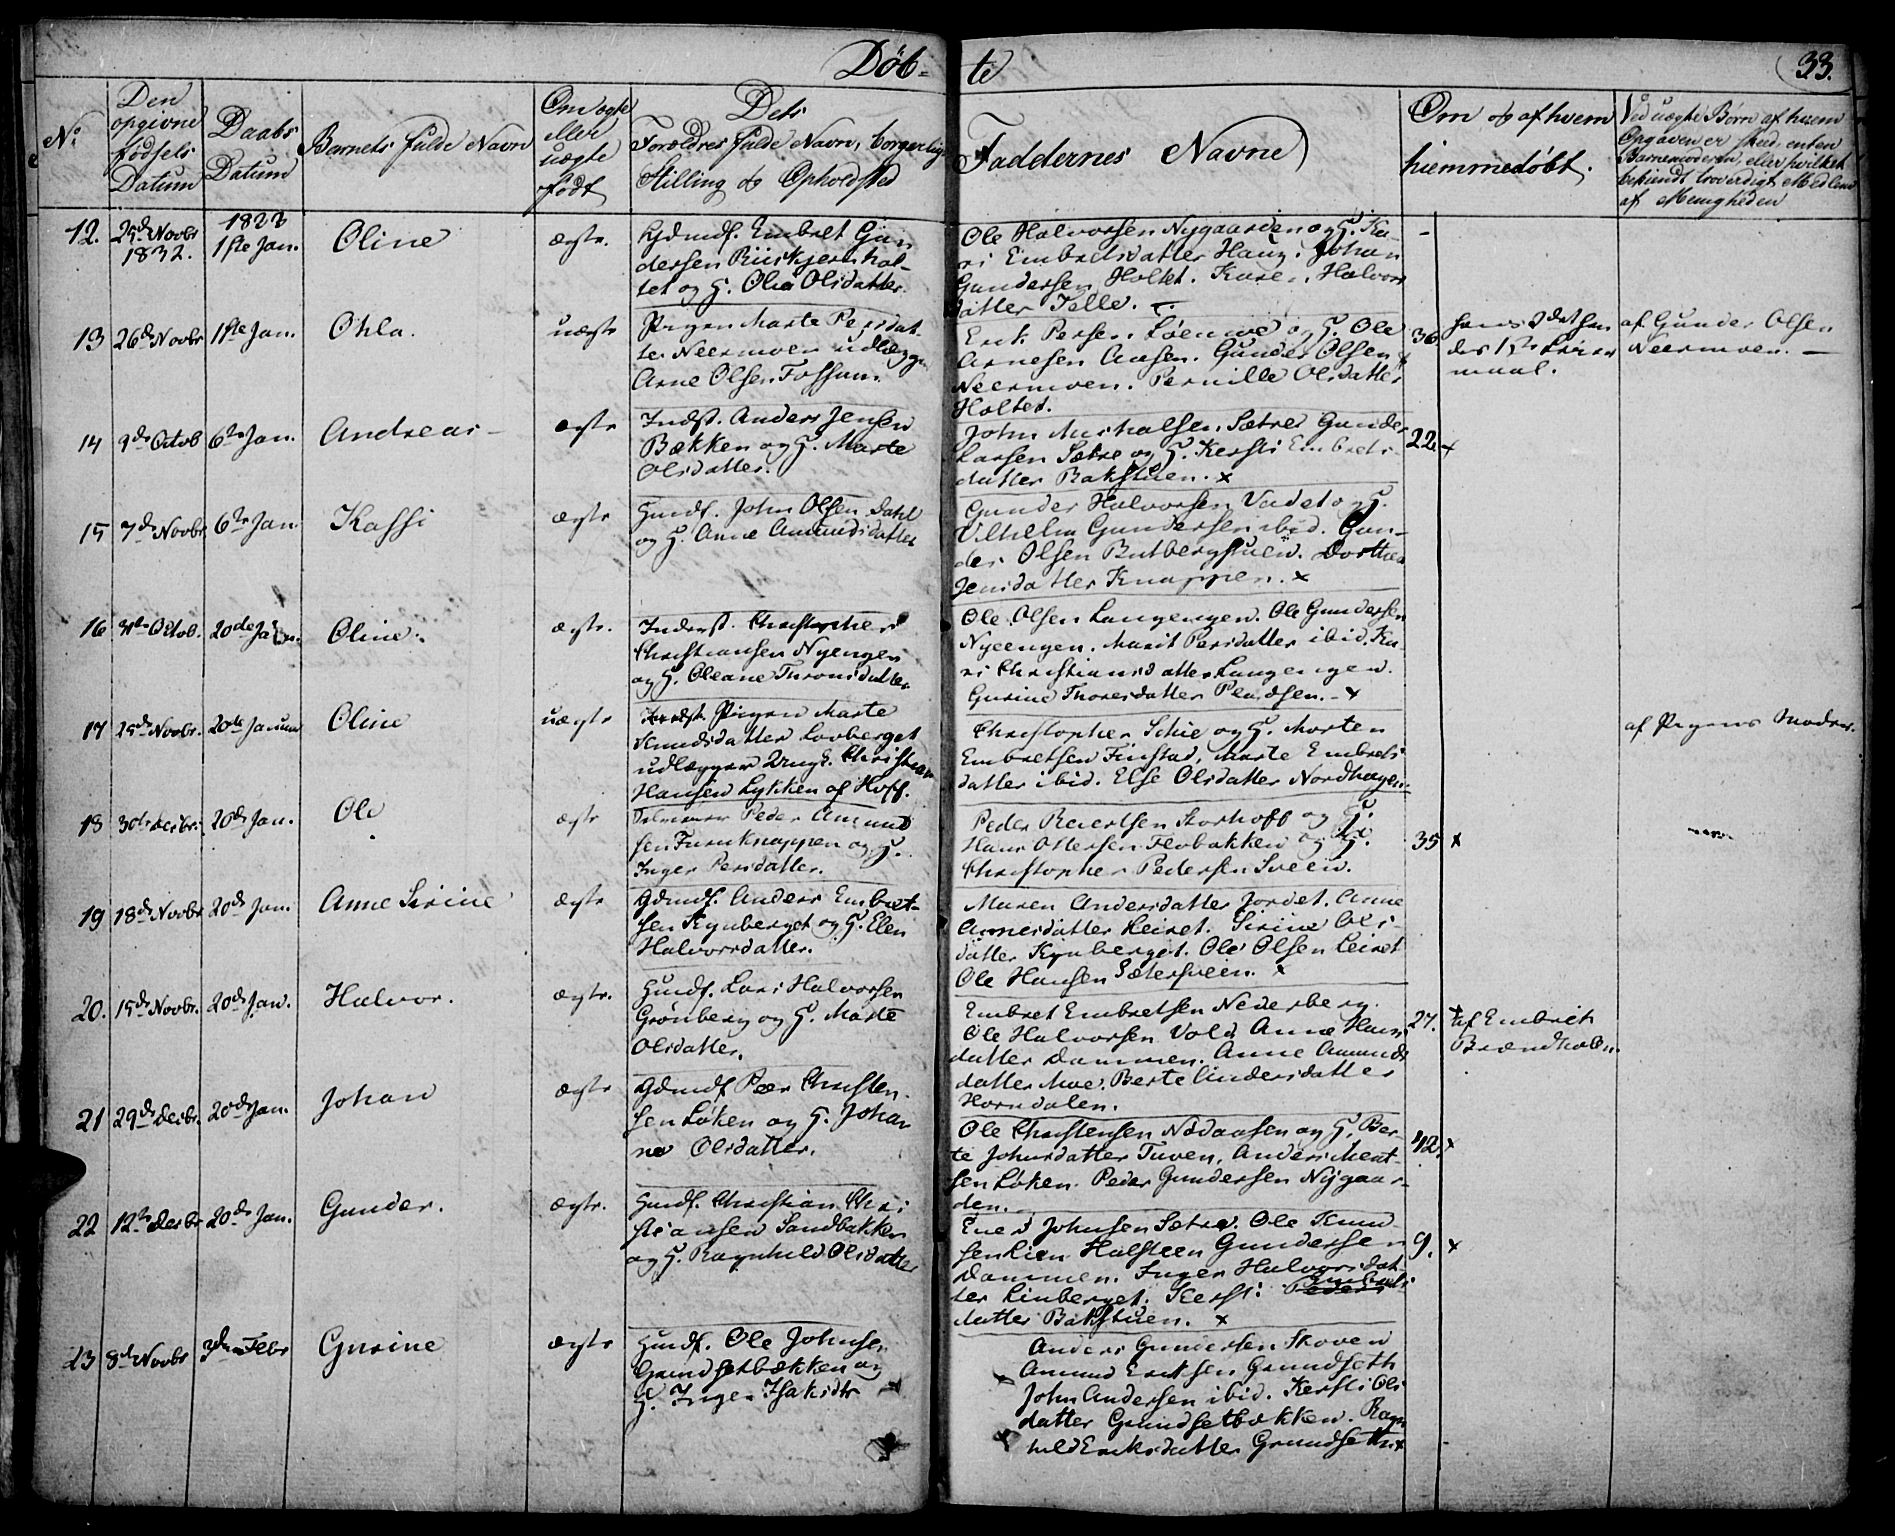 Døb-
te
33.
No.
Den opgivne fødsels Datum
Daabs Datum
Barnets fulde Navn
Om ægte eller uægte født
Dets Forældres fulde Navn, borgerlige Stilling og Opholdsted
Faddernes Navne
Om og af hvem hiemmedøbt.
Ved uægte Børn af hvem Opgaven er skeed, enten Barnemoderen, eller hvilket bekiendt troverdigt Medlem af Menigheden
12.
25de Novbr 1832.
1833 1ste Jan.
Oline
ægte.
Gdmdf. Embret Gun
dersen
tet og H. Olea Olsdatter.
Ole Halvorsen Nygaarden og H. Ka-
ri Embretsdatter Haug. Johan
Gundersen Holtet. Karen Halvors
datter Telle.
13
26de Novbr
1ste Jan.
Ohla.
uægte
Pigen Marte Persdat
ter Neermoen udlægger
Arne Olsen Fossum.
Erik Persen og H. Ole
Arnesen Aasen. Gunder Olsen
Neermoen. Pernille Olsdatter
Holtet.
36
maal.
af Gunder Olsen
Neermoen. —
14
9de Octob
6te Jan.
Andreas
ægte
Indst. Anders Jensen
Bækken og H. Marte
Olsdatter.
John Sætre Gunder
Larsen Sætre og H. Kersti Embrets
datter Bakstuen. x
22. x
15
7de Novbr
6te Jan
Kassi
ægte
Huusf. John Olsen Dahl
og H. Anne Amundsdatter
Gunder Halvorsen Vadet og H.
Vilhelm Gundersen ibid. Gun-
der Olsen Butbergstuen. Dorthea
Jensdatter Knappen. x
16
31te Octob.
20de Jan.
Oline.
ægte.
Inderst. Christopher
Christiansen Nyengen
og H. Oleane Tronsdatter
Ole Olsen Langengen. Ole Gundersen
Nyeengen. Marit Persdatter ibid. Ka-
ri Christiansdatter Langengen.
Gurine Thoresdatter x
17
25de Novbr.
20de Januar
Oline
uægte
Pigen Marte
Knudsdatter Lovberget
udlægger Ungk. Christian
Hansen Lykken af Hoff.
Christopher Schie og H. Morten
Embretsen Finstad, Marte Embrets
datter ibid. Else Olsdatter Nordhagen
af Pigens Moder.
18
30te Decbr.
20de Jan.
Ole
ægte
Peder Amund
sen Furuknappen og H.
Inger Persdatter.
Peder Reiertsen Storhoff og H.
Hans Ottersen Flobakken og H.
Christopher Pedersen Sveen.
35 x
19
18de Novbr
20de Jan.
Anne Sirine
ægte
Gdmdf. Anders Embret-
sen Kynberget og H. Elen
Halvorsdatter.
Maren Andersdatter Jordet. Anne
Arnesdatter Leiret. Sirine Ols-
datter Kynberget. Ole Olsen Leiret
Ole Hansen Sætersveen. x
20.
15de Novbr.
20de Jan.
Halvor.
ægte.
Huusf. Lars Halvorsen
Grønberg og H. Marte
Olsdatter.
Embret Embretsen Nederberg.
Ole Halvorsen Vold Anne Hans
datter Dammen. Anne Amunds
datter Moe. Berte Andersdatter
Horndalen.
27. x
af Embrik
21
29de Decbr.
20de Jan.
Johan
ægte
Gdmdf Peer Christen-
sen Løken og H. Johan
ne Olsdatter.
Ole Christensen Nødaasen og H. Ber-
te Johnsdatter Tuven, Anders
sen Løken. Peder Gundersen Nygaar-
den.
42. x
22
12te Decbr
20de Jan.
Gunder.
ægte.
Huusf. Christian Chri
stiansen Sandbakken
og H. Ragnhild Olsdatter
Ener Johnsen Sætre. Ole Knud
sen Lien Halsteen Gundersen
Dammen. Inger Halvorsdat-
ter Linberget. Kersti Peders Embrets
datter Bakstuen. x
9. x
23
8de Novbr
3die Febr
Gurine
ægte
Huusf. Ole Johnsen
Grundsetbækken og
H. Inger Isaksdtr
Anders Gundersen Skoven
Amund Eriksen Grundseth
John Andersen ibid. Kersti Ols
datter Grundsetbækken. Ragn
hild Eriksdatter Grundseth x